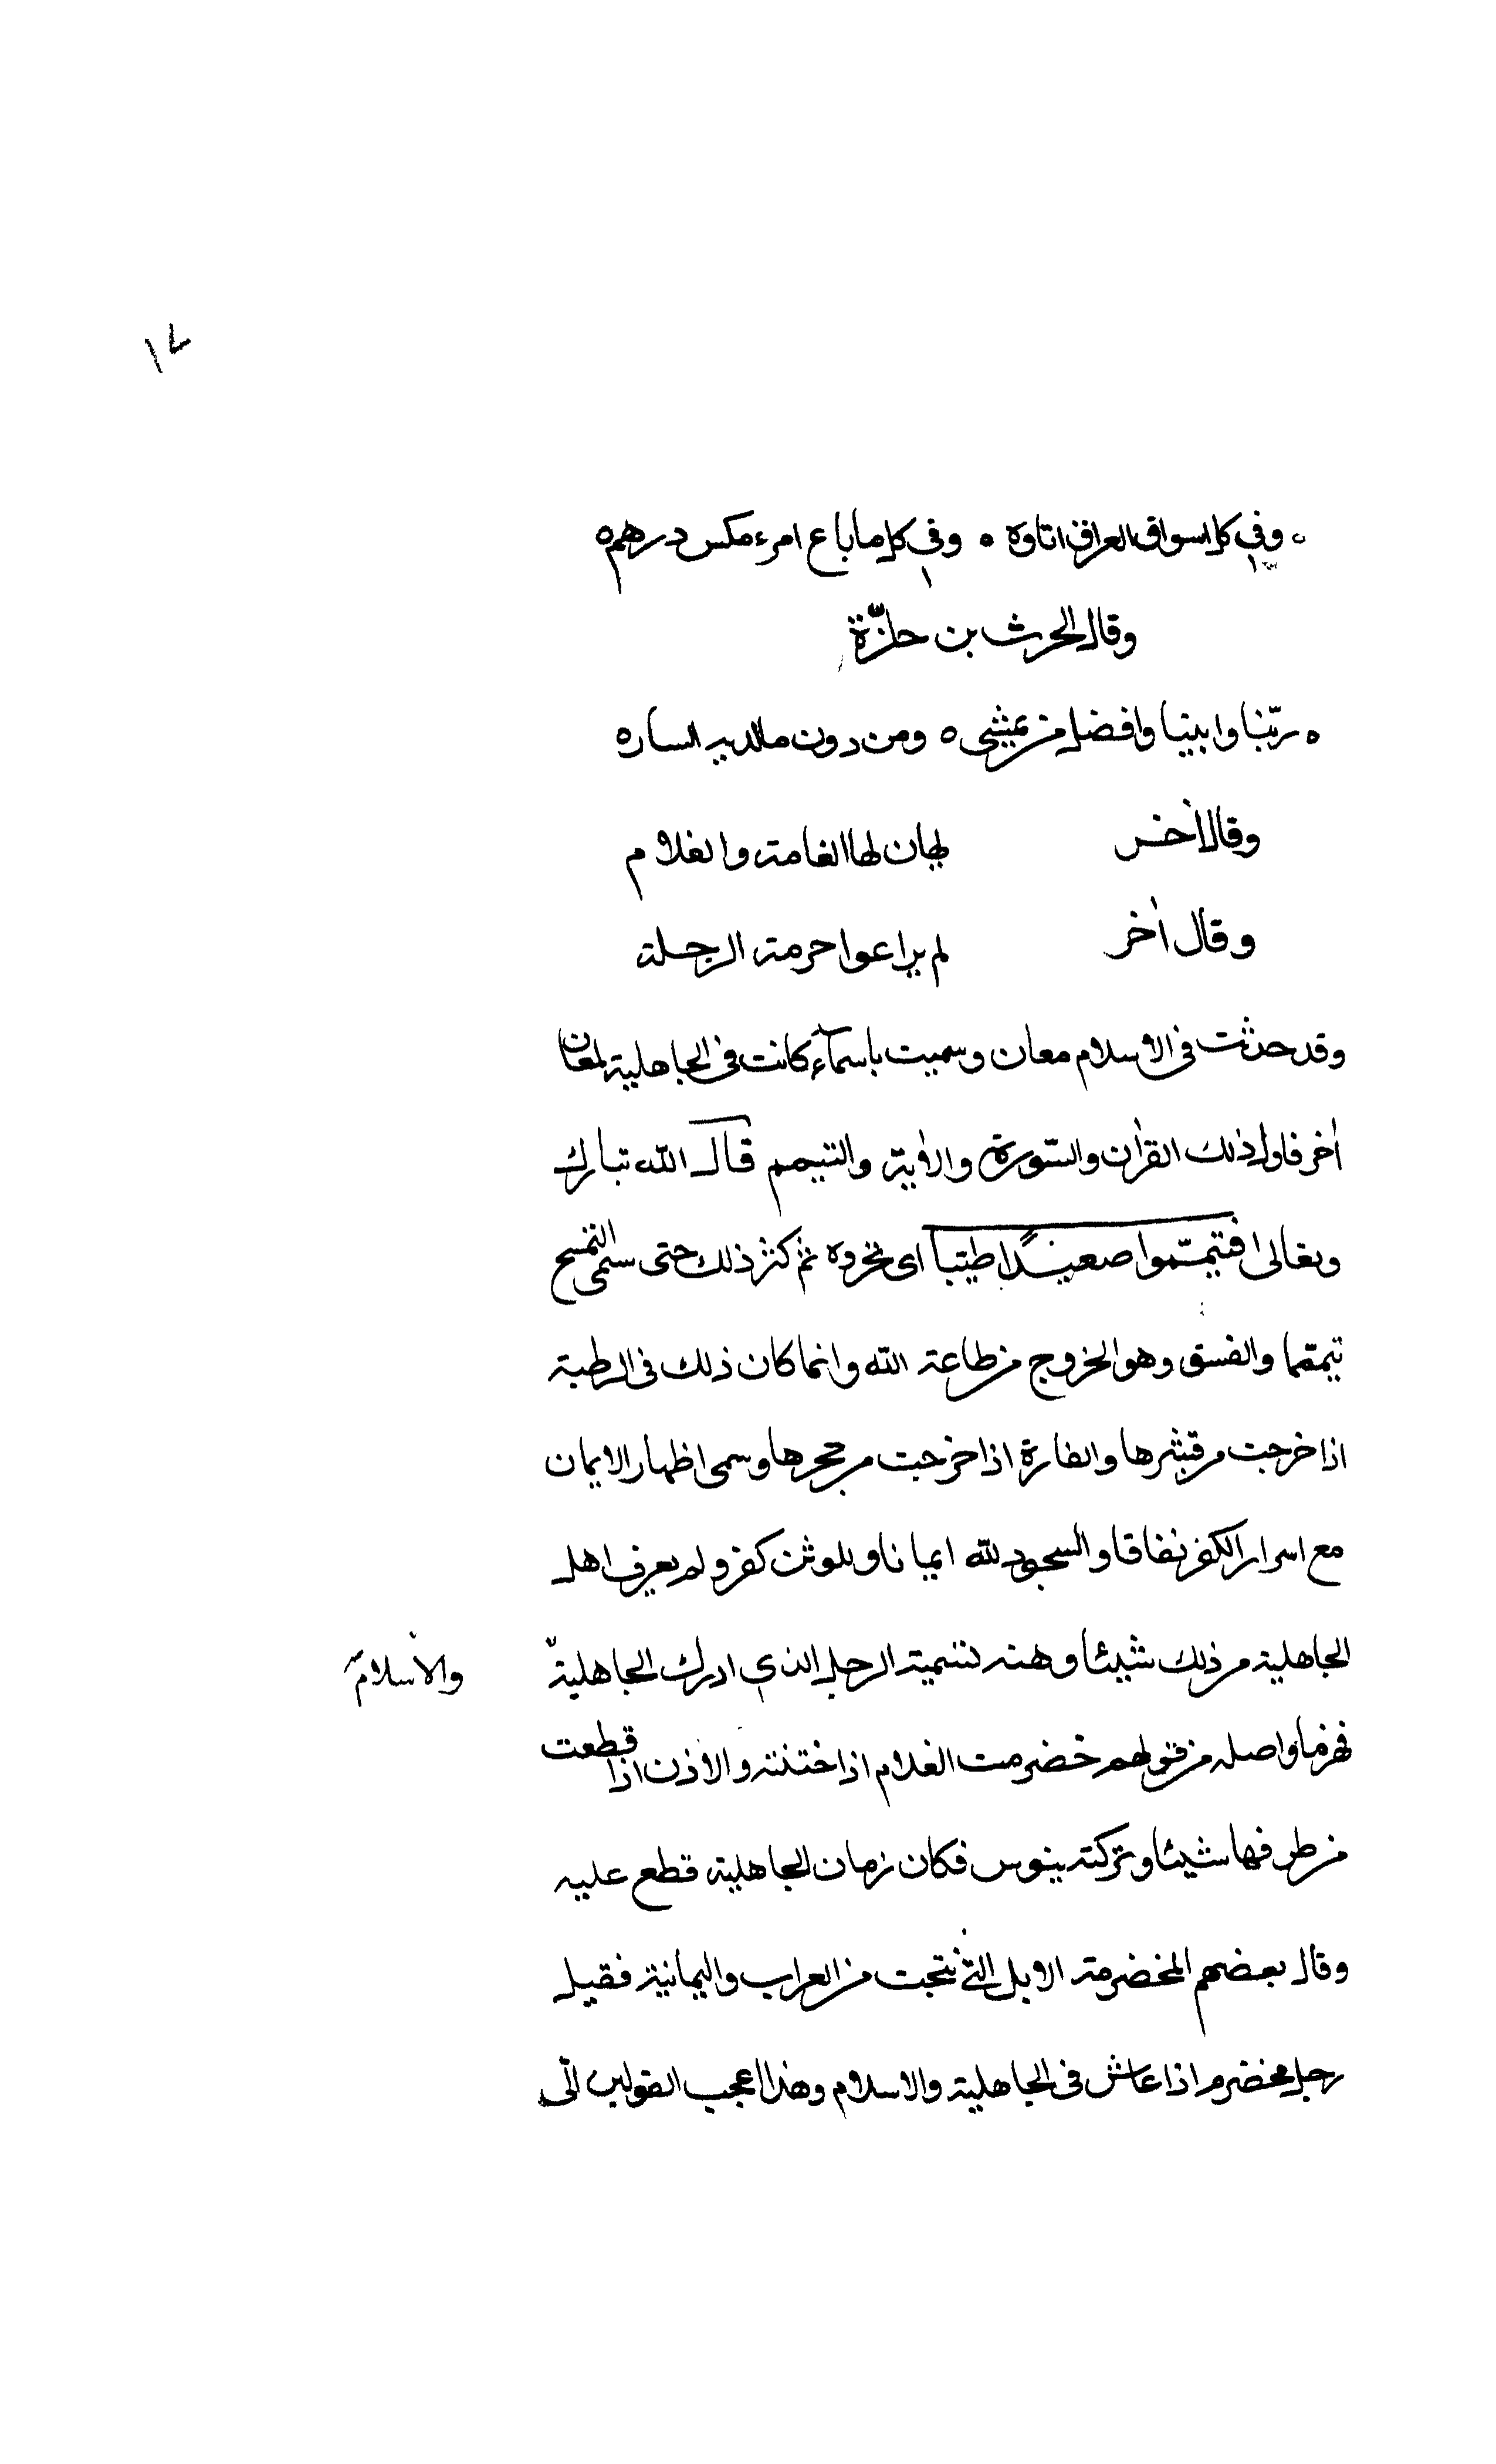 ١٧
وفى كل اسواق العراق اتاوة ه وفى كل ما باع امرء مكس درهم ه
وقال الحرث بن حلزّة
ه ربّنا وابننا وافضل من يمشى ه ومن دون ما لديه
وقال أخر يهان لها الغامة والغلام
وقال أخر لم يراعوا حرمة الرجلة
وقد حدثت فى الاسلام معان وسميت باسمآء كانت فى الجاهلية لمعان
أخر فاول ذلك القرأن والسّورة والأية والتيمم قال الله تبارك
وتعالى فتيمّموا صعيدًا طيّبا اى تحروه ثم كثر ذلك حتى سمى التمسح
تيمما والفسق وهو الخروج من طاعة الله وانما كان ذلك فى الرطبة
اذا خرجت من قشرها والفارة اذا خرجت من جحرها وسمى اظهار الايمان
مع اسرار الكفر نفاقا والسجود لله ايمانا وللوثن كفر ولم يعرف اهل
الجاهلية من ذلك شيئا وهنه تسمية الرجل الذى ادرك الجاهلية والاسلام
مخضرما واصله من قولهم خضرمت الغلام اذا ختنته والأذن اذا قطعت
من طرفها شيئا وتركته ينوس فكان زمان الجاهلية قطع عليه
وقال بعضهم المخضرمة الابل التى نتجت من العراب واليمانية فقيل
رجل مخضرم اذا عاش فى الجاهلية والاسلام وهذا اعجب القولين الىّ